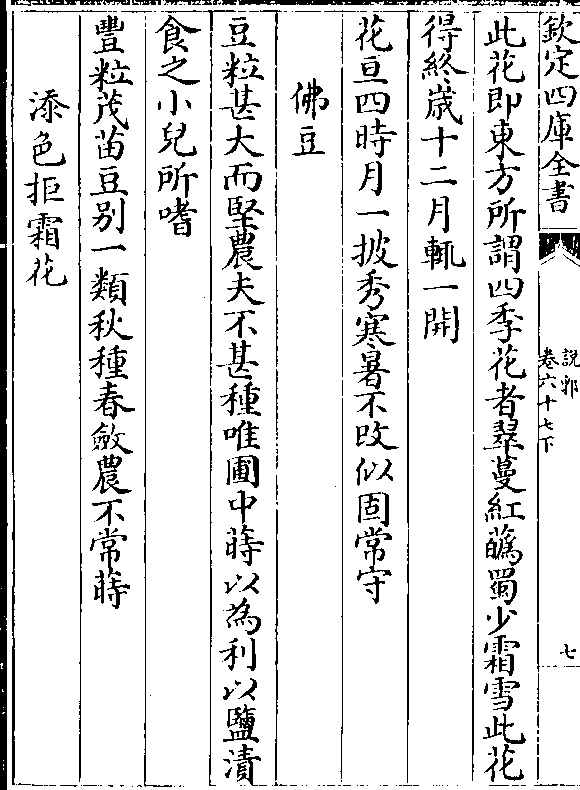 欽定四庫全書
說郛
卷六十七下
七
此花即東方所謂四季花者翠蔓紅蘤蜀少霜雪此花
得終歳十二月輒一開
花亘四時月一披秀寒暑不改似固常守
佛豆
豆粒甚大而堅農夫不甚種唯圃中蒔以為利以鹽漬
食之小兒所嗜
豐粒茂苗豆别一類秋種春斂農不常蒔
添色拒霜花